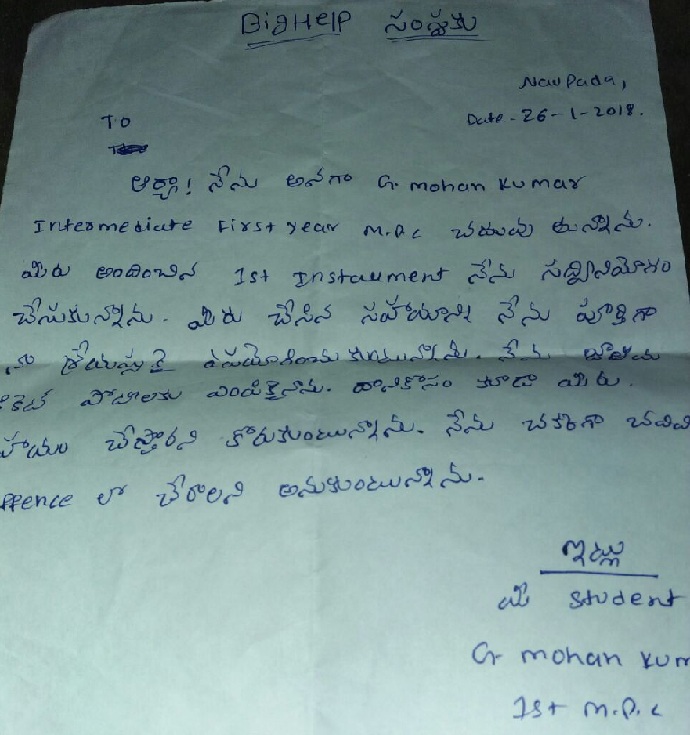 BigHelp సంస్థకు
Naupada,
TO
Date - 26-1-2018.
ఆర్యా! నేను అనగా G. mohan kumar
Intermediate First year M.P.C చదువు తున్నాను.
మీరు అందించిన 1st Instaument నేను సద్వినియోగం
చేసుకున్నాను. మీరు చేసిన సహాయాన్ని నేను పూర్తిగా
నా శ్రేయస్సుకై ఉపయోగించు కుంటున్నాను. నేను జాతీయ
పోటీలకు ఎంపికైనాను. దానికోసం కూడా మీరు.
చేస్తారని కోరుకుంటున్నాను. నేను చక్కగా చదివి
ffence లో చేరాలని అనుకుంటున్నాను.
ఇట్లు
మీ student
G. mohan kum
1st M.P.C